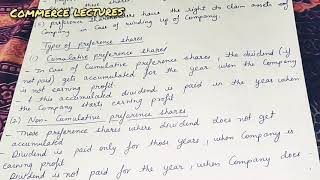 COMMERCE LECTURES
preference shares
(2) preference shareholders have the right to claim assets of
Company in case of winding up of Company.
Types of preference shares
(1) Cumulative preference shares
- In Case of Cumulative preference shares, the dividend (if
not paid) gets accumulated for the year when the Company
is not earning profit
- & this accumulated dividend is paid in the year when
the Company starts earning profit
(2) Non-Cumulative preference shares
- Those preference shares where dividend does not get
accumulated
- Dividend is paid only for those years, when Company is
earning profit
Dividend is not paid for the year, when Company does